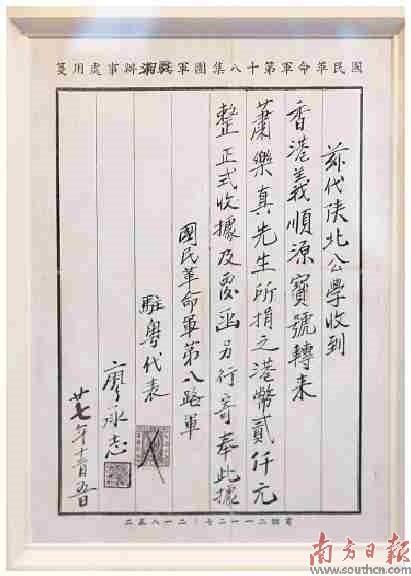 國民革命軍第十八集團軍湘辦事處用箋
茲代陝北公學收到
香港義順源寶號轉來
蕭樂真先生所捐之港幣貳仟元
整正式收據及覆函另行寄奉此據
國民革命軍第八路軍
駐粵代表
廖承志
廿七年
南方日报
www.southcn.com